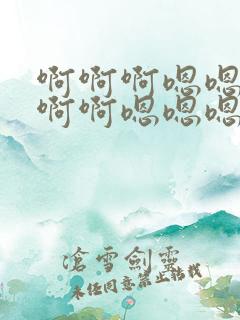 啊啊啊嗯嗯
啊啊嗯嗯嗯
滄雪劍靈
未经同意禁止转载